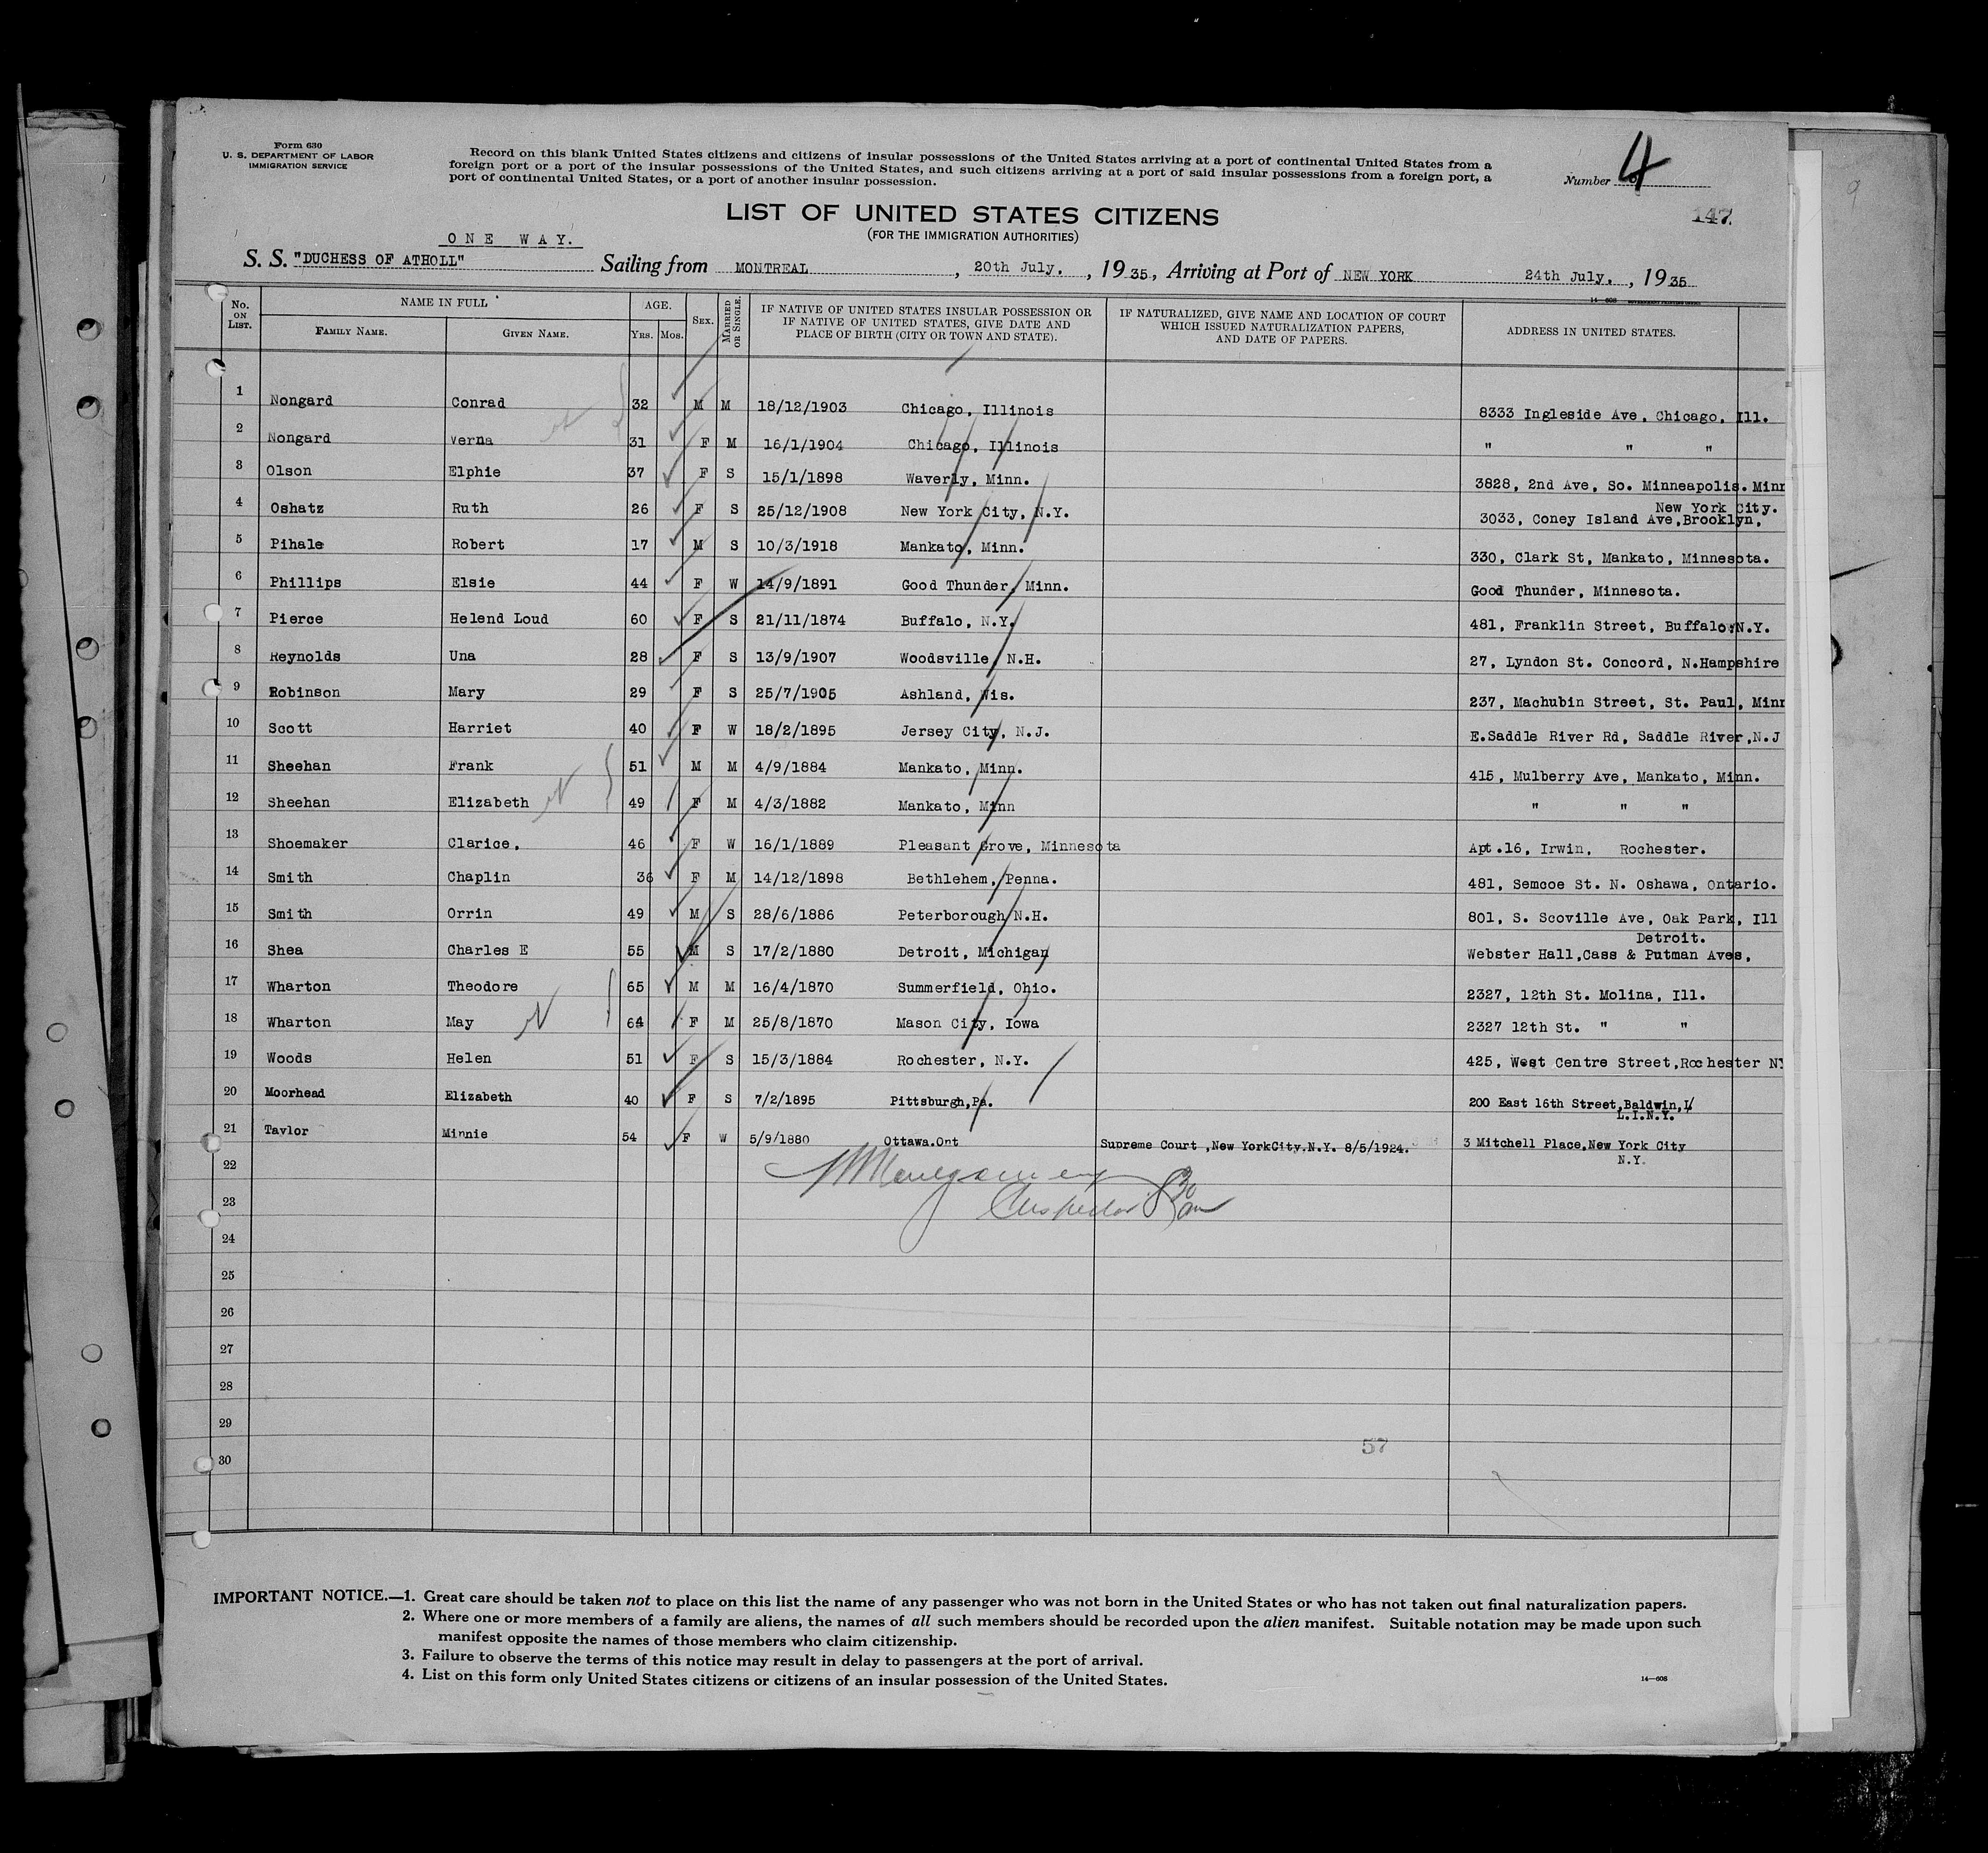 Form 630
U. S. DEPARTMENT OF LABOR
IMMIGRATION SERVICE
Record on this blank United States citizens and citizens of insular possessions of the United States arriving at a port of continental United States from a
foreign port or a port of the insular possessions of the United States, and such citizens arriving at a port of said insular possessions from a foreign port, a
port of continental United States, or a port of another insular possession.
Number 4
147
LIST OF UNITED STATES CITIZENS
(FOR THE IMMIGRATION AUTHORITIES)
ONE WAY.
S. S. "DUCHESS OF ATHOLL" Sailing from MONTREAL, 20th July., 1935, Arriving at Port of NEW YORK 24th July., 1935
14—608
No. ON LIST. NAME IN FULL FAMILY NAME. GIVEN NAME. AGE. YRS. MOS. SEX. MARRIED OR SINGLE. IF NATIVE OF UNITED STATES INSULAR POSSESSION OR IF NATIVE OF UNITED STATES, GIVE DATE AND PLACE OF BIRTH (CITY OR TOWN AND STATE). IF NATURALIZED, GIVE NAME AND LOCATION OF COURT WHICH ISSUED NATURALIZATION PAPERS, AND DATE OF PAPERS. ADDRESS IN UNITED STATES.
1 Nongard Conrad 32 M M 18/12/1903 Chicago, Illinois 8333 Ingleside Ave, Chicago, Ill.
2 Nongard Verna 31 F M 16/1/1904 Chicago, Illinois " " "
3 Olson Elphie 37 F S 15/1/1898 Waverly, Minn. 3828, 2nd Ave, So. Minneapolis. Minn
4 Oshatz Ruth 26 F S 25/12/1908 New York City, N.Y. 3033, Coney Island Ave,Brooklyn, New York City.
5 Pihale Robert 17 M S 10/3/1918 Mankato, Minn. 330, Clark St, Mankato, Minnesota.
6 Phillips Elsie 44 F W 14/9/1891 Good Thunder, Minn. Good Thunder, Minnesota.
7 Pierce Helend Loud 60 F S 21/11/1874 Buffalo, N.Y. 481, Franklin Street, Buffalo,N.Y.
8 Reynolds Una 28 F S 13/9/1907 Woodsville, N.H. 27, Lyndon St. Concord, N.Hampshire
9 Robinson Mary 29 F S 25/7/1905 Ashland, Wis. 237, Machubin Street, St. Paul, Minn
10 Scott Harriet 40 F W 18/2/1895 Jersey City, N.J. E.Saddle River Rd, Saddle River,N.J
11 Sheehan Frank 51 M M 4/9/1884 Mankato, Minn. 415, Mulberry Ave, Mankato, Minn.
12 Sheehan Elizabeth 49 F M 4/3/1882 Mankato, Minn " " "
13 Shoemaker Clarice. 46 F W 16/1/1889 Pleasant Grove, Minnesota Apt.16, Irwin, Rochester.
14 Smith Chaplin 36 F M 14/12/1898 Bethlehem, Penna. 481, Semcoe St. N. Oshawa, Ontario.
15 Smith Orrin 49 M S 28/6/1886 Peterborough N.H. 801, S. Scoville Ave, Oak Park, Ill
16 Shea Charles E 55 M S 17/2/1880 Detroit, Michigan Webster Hall,Cass & Putman Aves, Detroit.
17 Wharton Theodore 65 M M 16/4/1870 Summerfield, Ohio. 2327, 12th St. Molina, Ill.
18 Wharton May 64 F M 25/8/1870 Mason City, Iowa 2327 12th St. " "
19 Woods Helen 51 F S 15/3/1884 Rochester, N.Y. 425, West Centre Street,Rochester NY
20 Moorhead Elizabeth 40 F S 7/2/1895 Pittsburgh,Pa. 200 East 16th Street,Baldwin,L/ L.I.N.Y.
21 Taylor Minnie 54 F W 5/9/1880 Ottawa.Ont Supreme Court ,New YorkCity.N.Y. 8/5/1924. 3 Mitchell Place,New York City N.Y.
22
23 Inspector
24
25
26
27
28
29
57
30
IMPORTANT NOTICE.—1. Great care should be taken not to place on this list the name of any passenger who was not born in the United States or who has not taken out final naturalization papers.
2. Where one or more members of a family are aliens, the names of all such members should be recorded upon the alien manifest. Suitable notation may be made upon such
manifest opposite the names of those members who claim citizenship.
3. Failure to observe the terms of this notice may result in delay to passengers at the port of arrival.
4. List on this form only United States citizens or citizens of an insular possession of the United States.
14—608